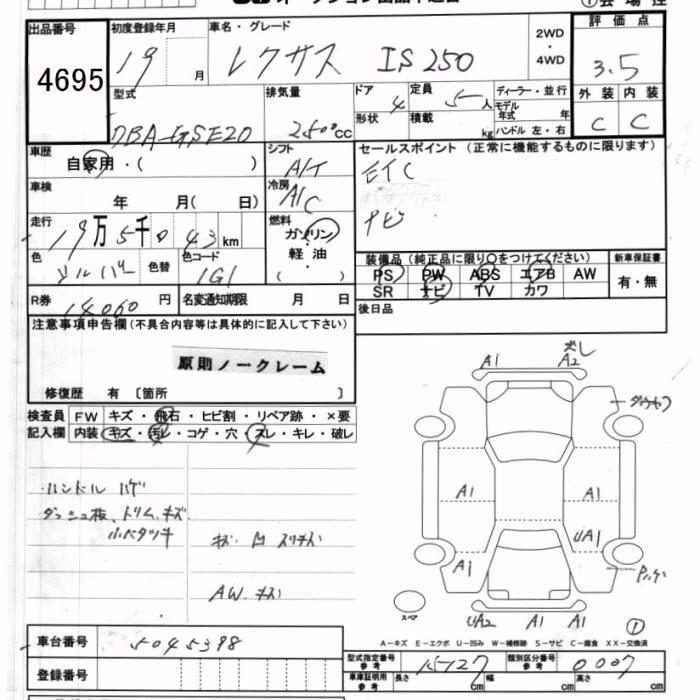 出品番号
4695
初度登録年月
19 月
車名・グレード
レクサス IS250
2WD
・
4WD
評価点
3.5
外装 内装
C C
型式
DBA-GSE20
排気量
2500cc
ドア
4
形状
定員
5人
積載
kg
ディーラー・並行
モデル年式 年
ハンドル 左・右
車歴
自家用・( )
シフト
A/T
セールスポイント(正常に機能するものに限ります)
ETC
ナビ
車検
年 月( 日)
冷房
A/C
走行
19万5千043km
燃料
ガソリン
軽油
( )
色
シルバー
色替
色コード
1G1
装備品(純正品に限り○をつけてください)
PS PW ABS エアB AW
SR ナビ TV カワ
新車保証書
有・無
R券
14060円
名変通知期限 月 日
後日品
注意事項申告欄(不具合内容等は具体的に記入して下さい)
原則ノークレーム
修復歴 有〔箇所 〕
検査員記入欄
FW キズ・飛石・ヒビ割・リペア跡・×要
内装 キズ・汚レ・コゲ・穴・スレ・キレ・破レ
ハンドル ハゲ
ダッシュ板、トリム、キズ
AW. キズ
A1 A2
A1 A1
UA1
A1
スペア
UA2 A1 A1
①
A-キズ E-エクボ U-凹み W-補修跡 S-サビ C-腐食 XX-交換済
車台番号
5045398
登録番号
型式指定番号
参考
15127
類別区分番号
参考
0007
車庫証明用
参考
長さ cm
幅 cm
高さ cm